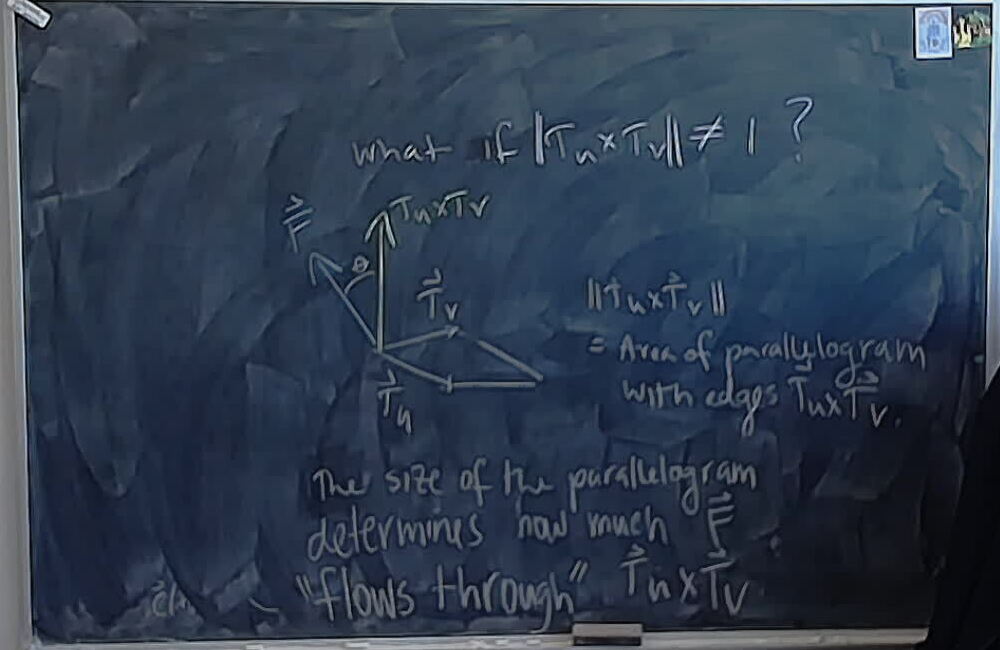 what if ‖Tᵤ×Tᵥ‖ ≠ 1 ?
F⃗
Tᵤ×Tᵥ
θ
T⃗ᵥ
T⃗ᵤ
‖Tᵤ×T⃗ᵥ‖
= Area of parallelogram
with edges T⃗ᵤ×T⃗ᵥ.
The size of the parallelogram
determines how much F⃗
"flows through" T⃗ᵤ×T⃗ᵥ